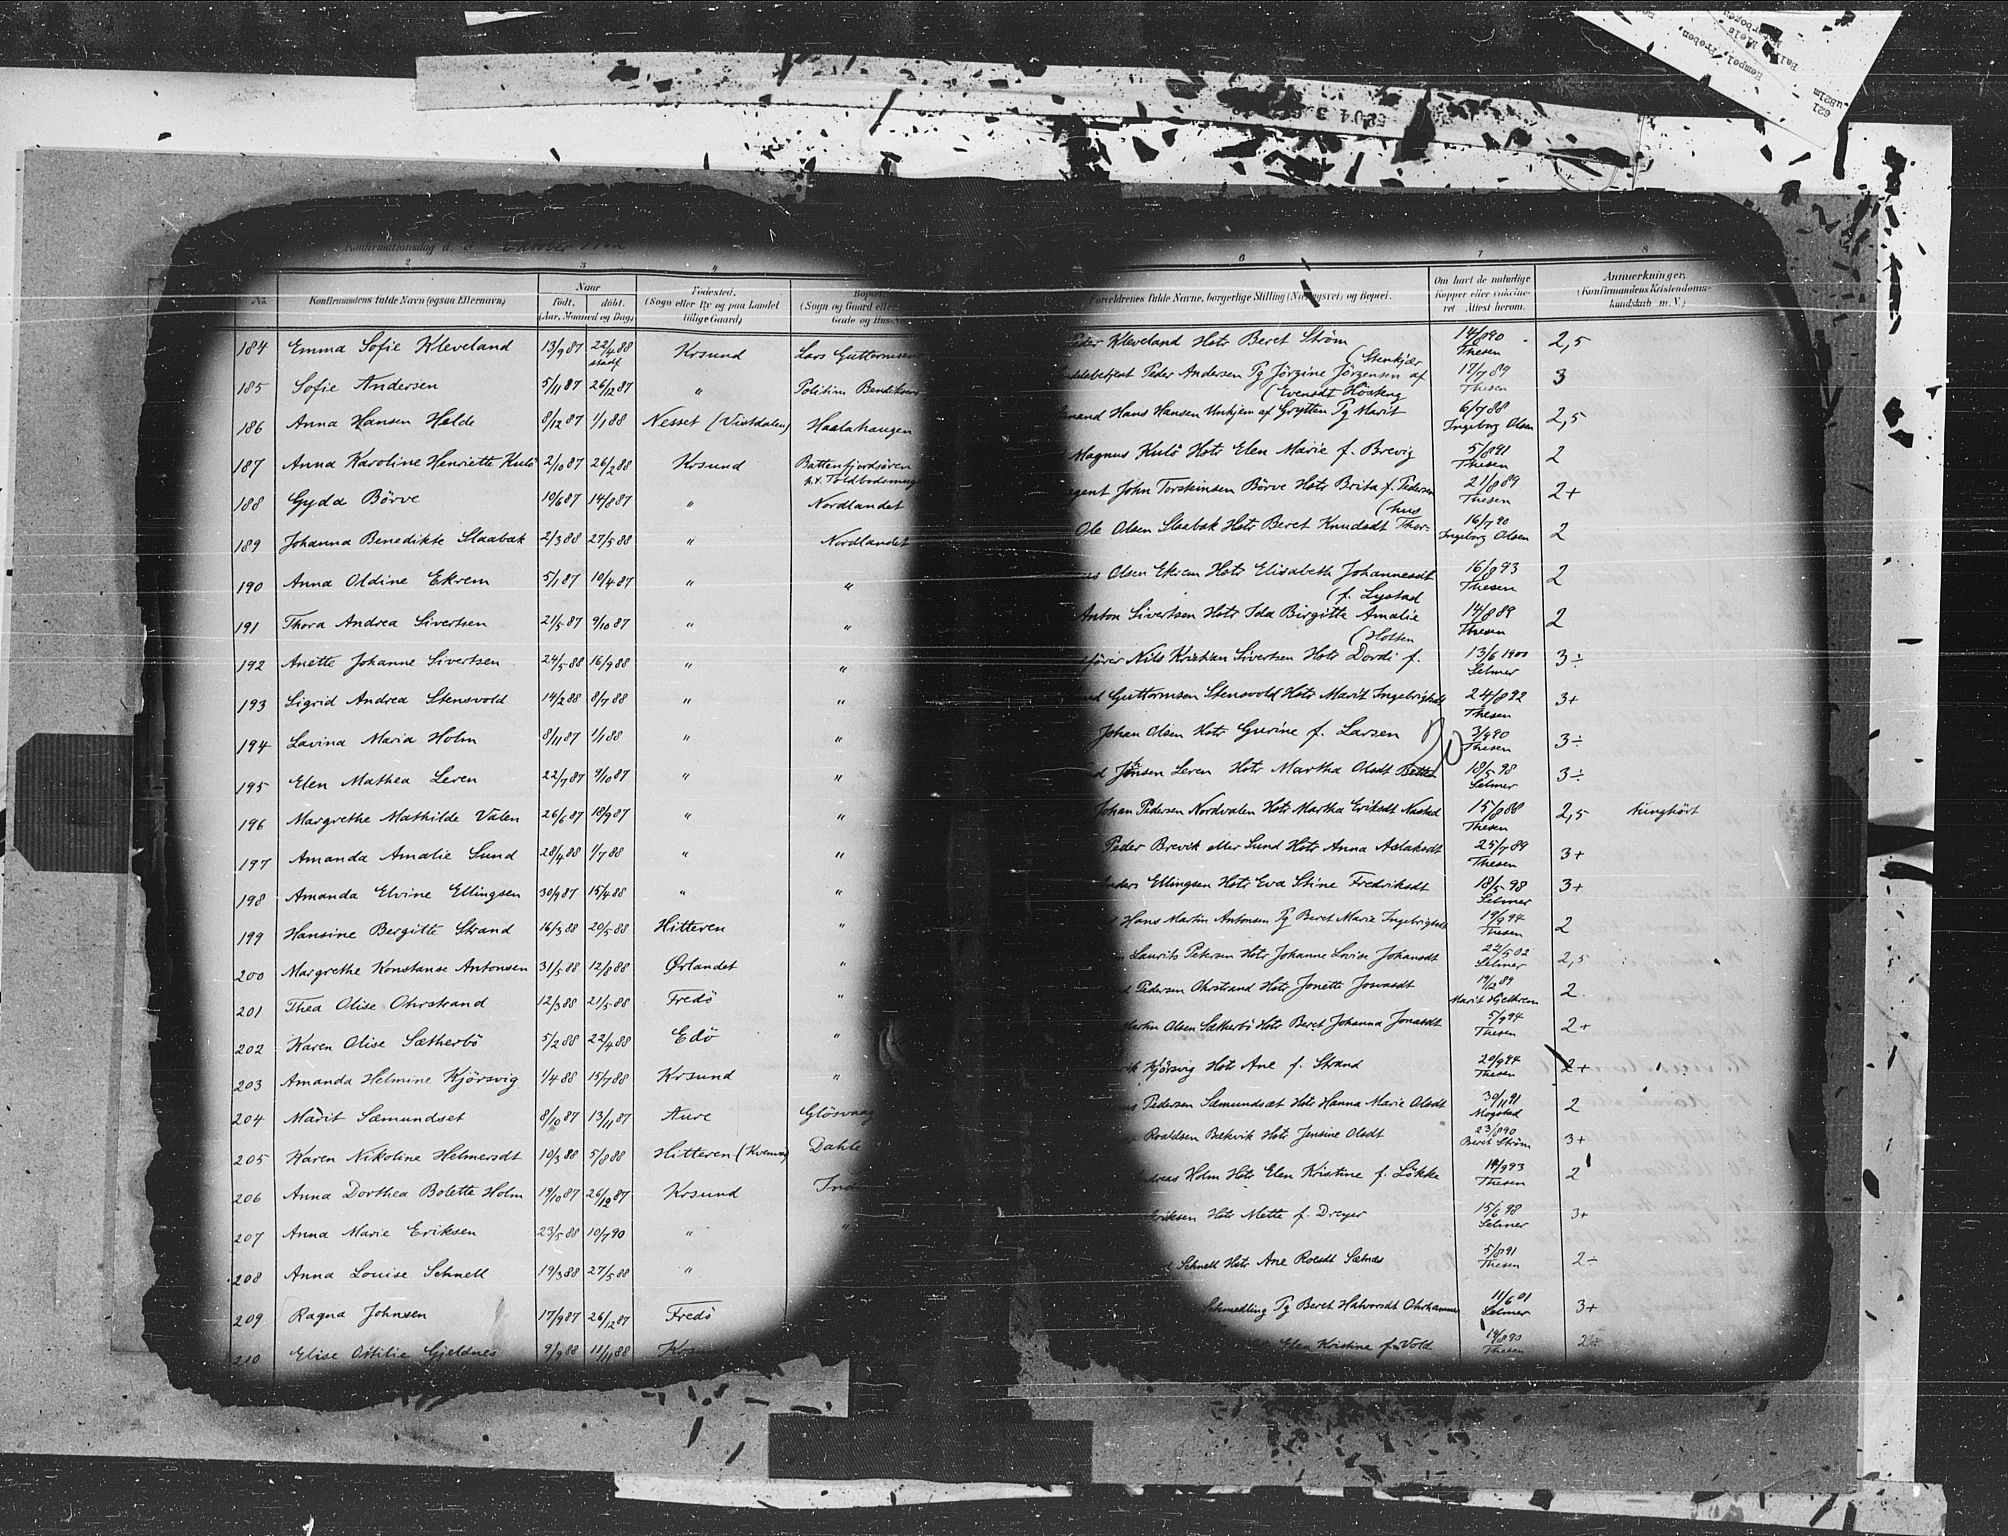 Konfirmationsdag d. 5 Oktober 1902
2 3 4
No. Konfirmandens fulde Navn (ogsaa Efternavn) Naar født. døbt. (Aar, Maaned og Dag) Fødested. (Sogn eller By og paa Landet tillige Gaard) Bopæl. (Sogn og Gaard eller Gade og Hus
184 Emma Sofie Kleveland 13/9 87 22/4 88 stadf Krsund Lars Guttormsen
185 Sofie Andersen 5/11 87 26/12 87 " Politibn Bendiksen
186 Anna Hansen Helde 8/12 87 1/1 88 Nesset (Vistdalen) Haalahaugen
187 Anna Karoline Henriette Kulø 2/10 87 26/2 88 Krsund Battenfjordsøren
188 Gyda Börve 10/6 87 14/8 87 " Nordlandet
189 Johanna Benedikte Slaabak 2/3 88 27/5 88 " Nordlandet
190 Anna Oldine Ekrem 5/1 87 10/4 87 " "
191 Thora Andrea Sivertsen 21/5 87 9/10 87 " "
192 Anette Johanne Sivertsen 24/5 88 16/9 88 " "
193 Sigrid Andrea Stensvold 14/2 88 8/7 88 " "
194 Lavina Maria Holm 8/11 87 1/1 88 " "
195 Elen Mathea Leren 22/7 87 9/10 87 " "
196 Margrethe Mathilde Valen 26/6 87 18/9 87 " "
197 Amanda Amalie Sund 28/4 88 1/7 88 " "
198 Amanda Elvine Ellingsen 30/9 87 15/4 88 " "
199 Hansine Bergitte Strand 16/3 88 20/5 88 Hitteren "
200 Margrethe Konstanse Antonsen 31/5 88 12/8 88 Ørlandet "
201 Thea Olise Ohrstrand 12/3 88 21/5 88 Fredö "
202 Karen Olise Sætherbö 5/2 88 22/4 88 Edö "
203 Amanda Helmine Kjörsvig 1/4 88 15/7 88 Krsund "
204 Marit Sæmundset 8/10 87 13/11 87 Aure Glösvaag
205 Karen Nikoline Helmersdt 10/3 88 5/8 88 Hitteren (Kvenvær) Dahle
206 Anna Dorthea Bolette Holm 19/10 87 26/12 87 Krsund Ind
207 Anna Marie Eriksen 23/5 88 10/7 90 " "
208 Anna Louise Schnell 19/3 88 27/5 88 "
209 Ragna Johnsen 17/9 87 26/12 87 Fredö
210 Elise Ottilie Gjeldnes 9/9 88 11/11 88 Krsund
6 7 8
Forældrenes fulde Navne, borgerlige Stilling (Næringsvei) og Bopæl. Om havt de naturlige Kopper eller vakcineret. Attest herom. Anmærkninger. (Konfirmandens Kristendomskundskab m. V.)
Peder Kleveland Hstr Beret Ström 14/8 90 Thesen 2,5
(Stenkjær
Peder Andersen Pg Jörgine Jörgensen af 17/7 89 Thesen 3
(Evensdt Höskeng
mand Hans Hansen Unhjem af Grytten Pg Marit 6/7 88 Ingeborg Olsen 2,5
Magnus Kulö Hstr Elen Marie f. Brevig 5/8 91 Thesen 2
John Torstinsen Börve Hstr Brita f. Pedersen 21/8 89 Thesen 2+
(hus
Ole Olsen Slaabak Hstr Beret Knudsdt Thor- 16/7 90 Ingeborg Olsen 2
Olsen Ekrem Hstr Elisabeth Johannesdt 16/8 93 Thesen 2
(f. Lystad
Anton Sivertsen Hstr Ida Birgitte Amalie 14/8 89 Thesen 2
(Holsen
Nils Kristian Sivertsen Hstr Dordi f. 13/6 1900 Selmer 3÷
Guttormsen Stensvold Hstr Marit Ingebrigtsdt 24/8 92 Thesen 3+
Johan Olsen Hstr Gurine f. Larsen 3/9 90 Thesen 3÷
Jönsen Leren Hstr Martha Olsdt 18/5 98 Selmer 3÷
Johan Pedersen Nordvalen Hstr Martha Eriksdt Nastad 15/8 88 Thesen 2,5 tunghört
Peder Brevik eller Sund Hstr Anna Aslaksdt 25/7 89 Thesen 3+
Anders Ellingsen Hstr Eva Stine Fredriksdt 18/5 98 Selmer 3+
Hans Martin Antonsen Pg Beret Marie Ingebrigtsdt 19/9 94 Thesen 2
Laurits Petersen Hstr Johanne Lovise Johansdt 22/5 02 Selmer 2,5
Pedersen Ohrstrand Hstr Jonette Josvasdt 19/12 89 Marit Hjelkrem 2
Martin Olsen Sætherbö Hstr Beret Johanna Jonasdt 5/9 94 Thesen 2+
Kjörsvig Hstr Ane f. Strand 20/9 94 Thesen 2+
Pedersen Sæmundsæt Hstr Hanna Marie Olsdt 30/11 91 Mogstad 2
Roaldsen Bækvik Hstr Jensine Olsdt 23/8 90 Beret Ström 3+
Andreas Holm Hstr Elen Kristine f. Lökke 14/9 93 Thesen 2
Eriksen Hstr Mette f. Dreyer 15/6 98 Selmer 3+
Schnell Hstr Ane Roesdt Sætnæs 5/8 91 Thesen 2÷
Schmedling Pg Beret Halvorsdt Ohrhammer 11/6 01 Selmer 3+
Elen Kristine f. Vold 14/8 90 Thesen 2÷